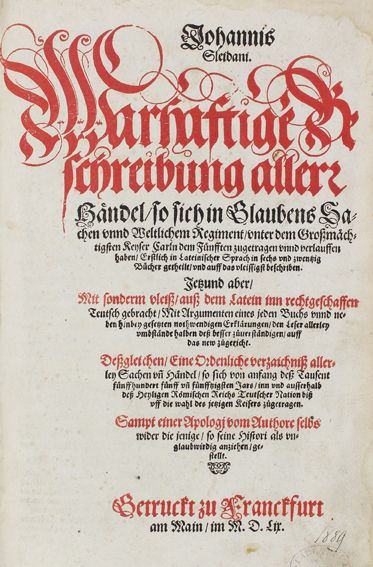 Johannis
Sleidani.
Warhaftige Be
schreibung aller
Händel/ so sich in Glaubens Sa-
chen vnnd Weltlichem Regiment/ vnter dem Großmäch-
tigsten Keyser Carln dem Fünfften zugetragen vnnd verlauffen
haben/ Erstlich in Lateinischer Sprach in sechs vnd zwentzig
Bücher getheilt/ vnd auff das vleissigst beschriben.
Jetzund aber/
Mit sonderm vleiß/ auß dem Latein inn rechtgeschaffen
Teutsch gebracht/ Mit Argumenten eines jeden Buchs vnnd ne-
ben hinbey gesetzten nothwendigen Erklärungen/ den Leser allerley
vmbstände halben deß besser zuuerständigen/ auff
das new zugericht.
Deßgleichen/ Eine Ordenliche verzaichniß aller-
ley Sachen vñ Händel/ so sich von anfang deß Tausent
fünffhundert fünff vñ fünffzigsten Jars/ inn vnd ausserhalb
deß Heyligen Römischen Reichs Teutscher Nation biß
vff die wahl des jetzigen Keisers zugetragen.
Sampt einer Apologi vom Authore selbs
wider die jenige/ so seine Histori als vn-
glaubwirdig anziehen/ ge-
stellt.
Getruckt zu Franckfurt
am Main/ im M. D. Lix.
1889